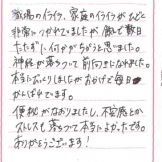 職場のイライラ、家庭のイライラがなどと
非常につかれていましたが飲んで数日
たたずに何かがちがうと思いました。
神経が落ちついて前向きになれました。
本当にびっくりしましたがおかげで毎日
がんばれています。
便秘がなおりましたし、不安感とか
ストレスも落ちついて本当によかったです。
ありがとうございます!